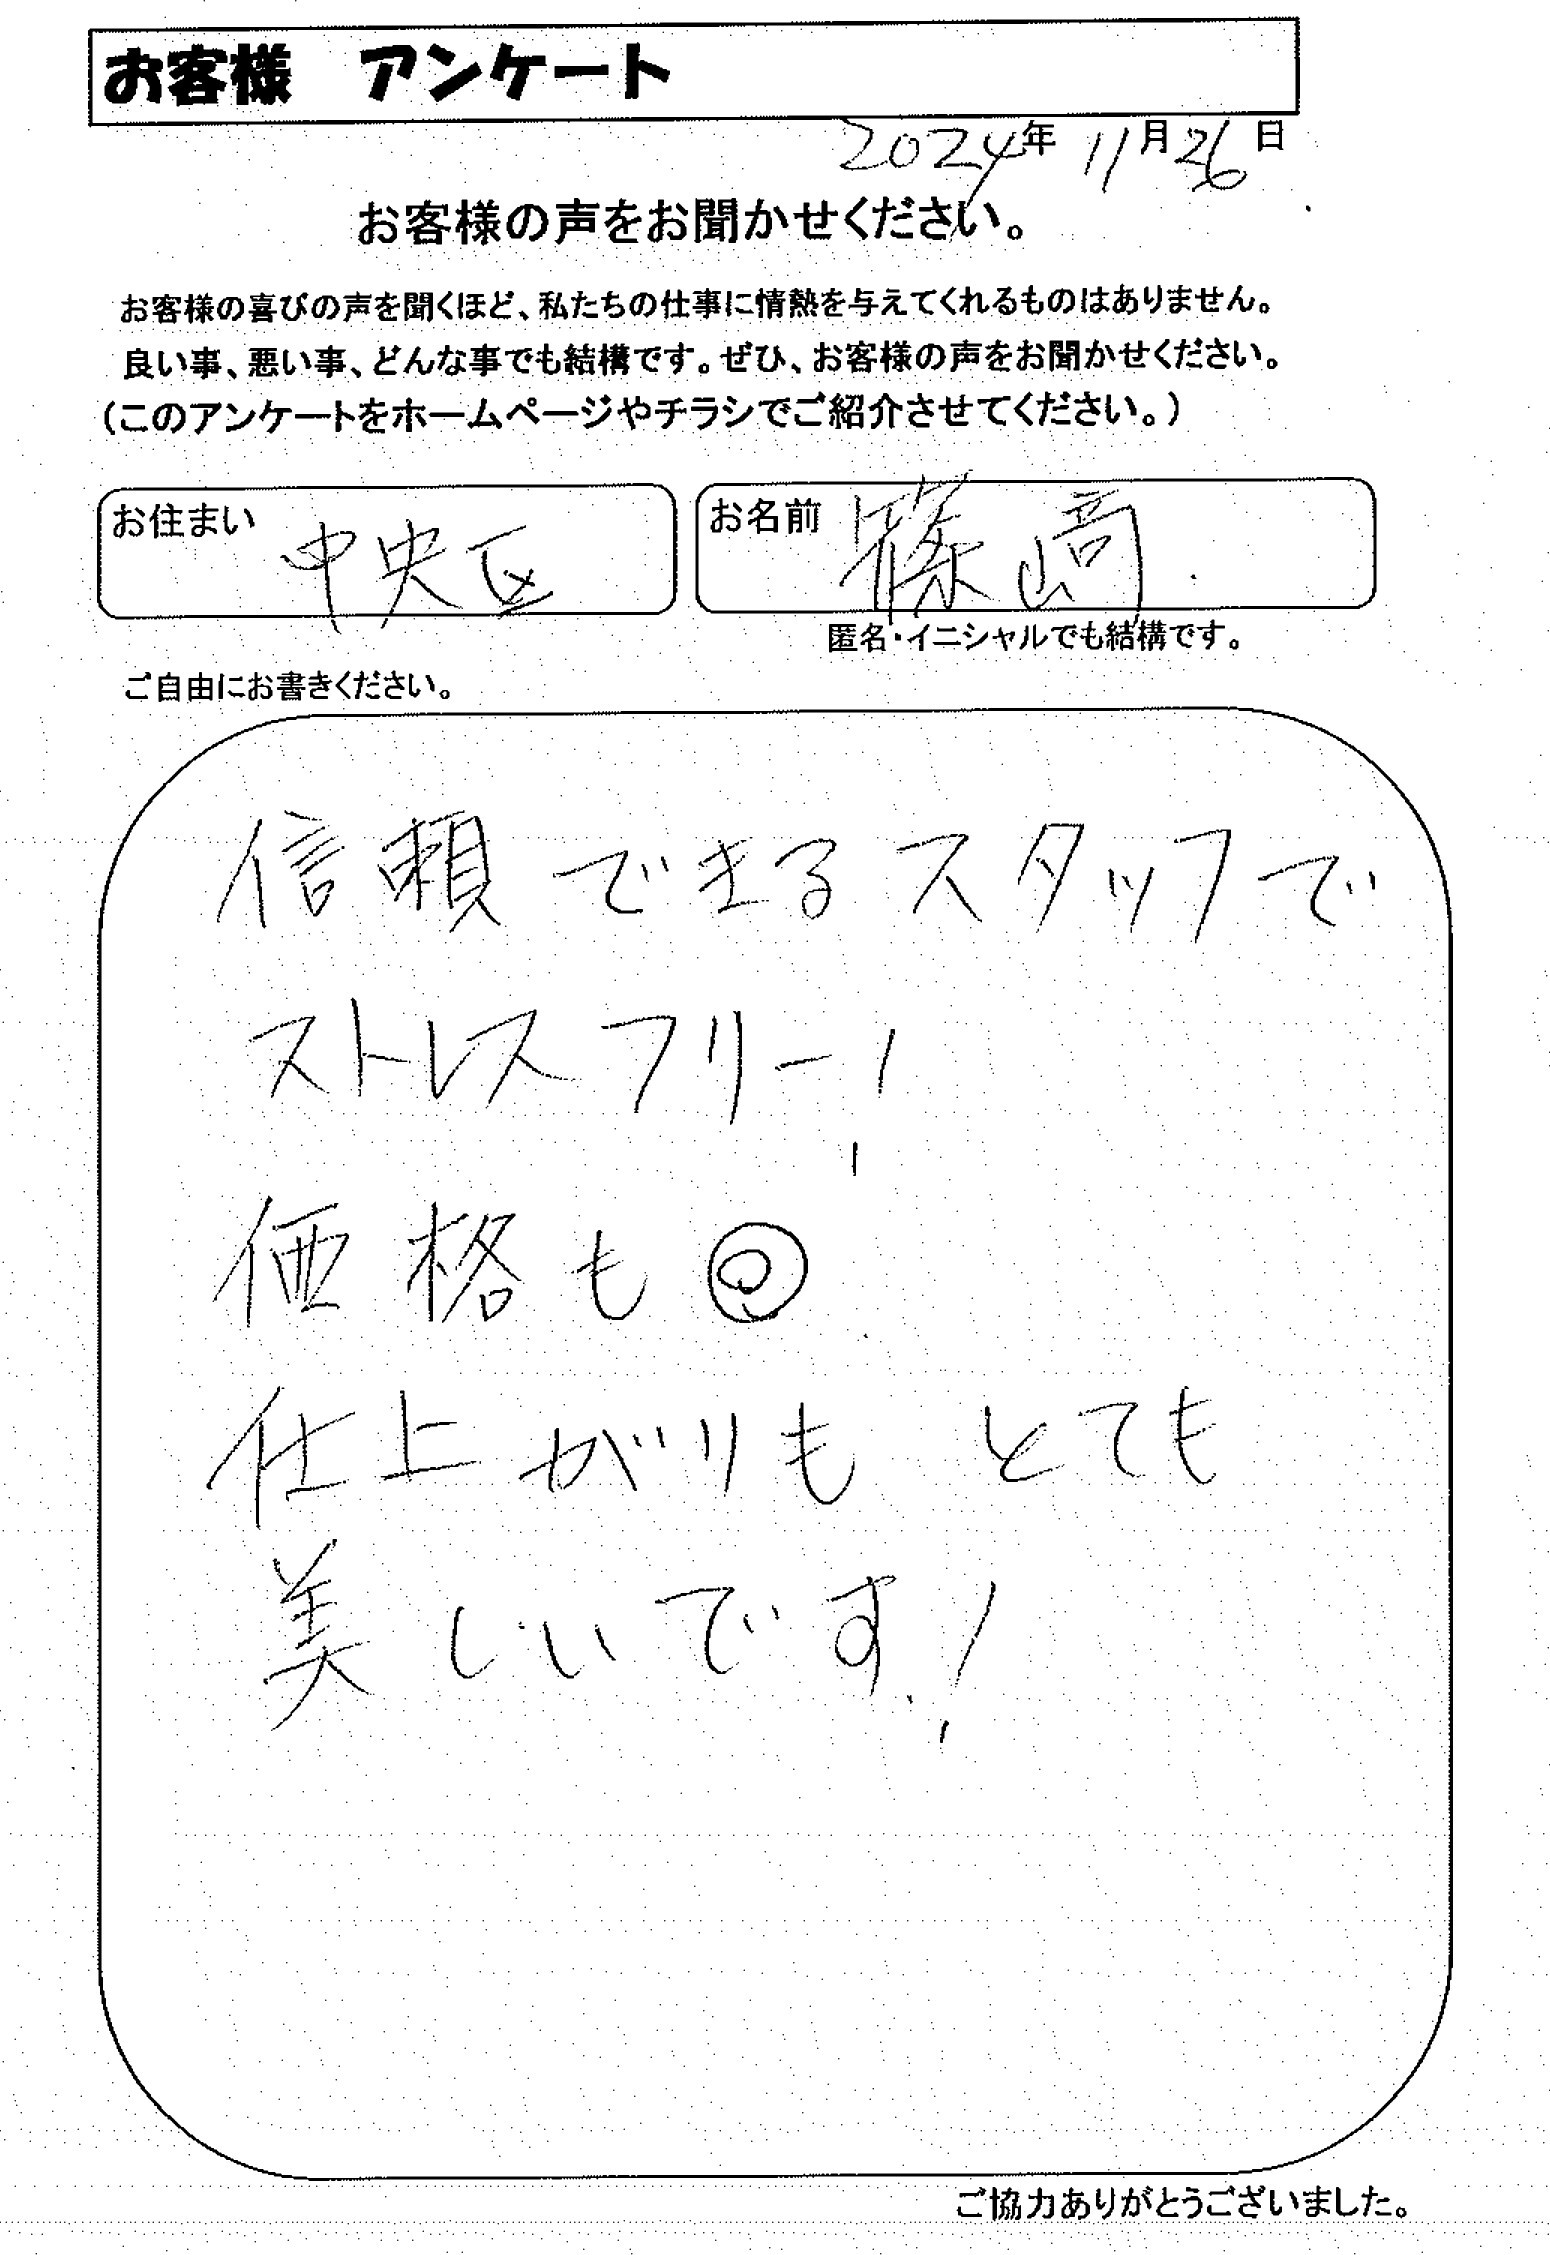 お客様 アンケート
2024年 11月26日
お客様の声をお聞かせください。
お客様の喜びの声を聞くほど、私たちの仕事に情熱を与えてくれるものはありません。
良い事、悪い事、どんな事でも結構です。ぜひ、お客様の声をお聞かせください。
(このアンケートをホームページやチラシでご紹介させてください。)
お住まい 中央区
お名前 篠﨑
匿名・イニシャルでも結構です。
ご自由にお書きください。
信頼できるスタッフで
ストレスフリー!
価格も◎
仕上がりも とても
美しいです!
ご協力ありがとうございました。